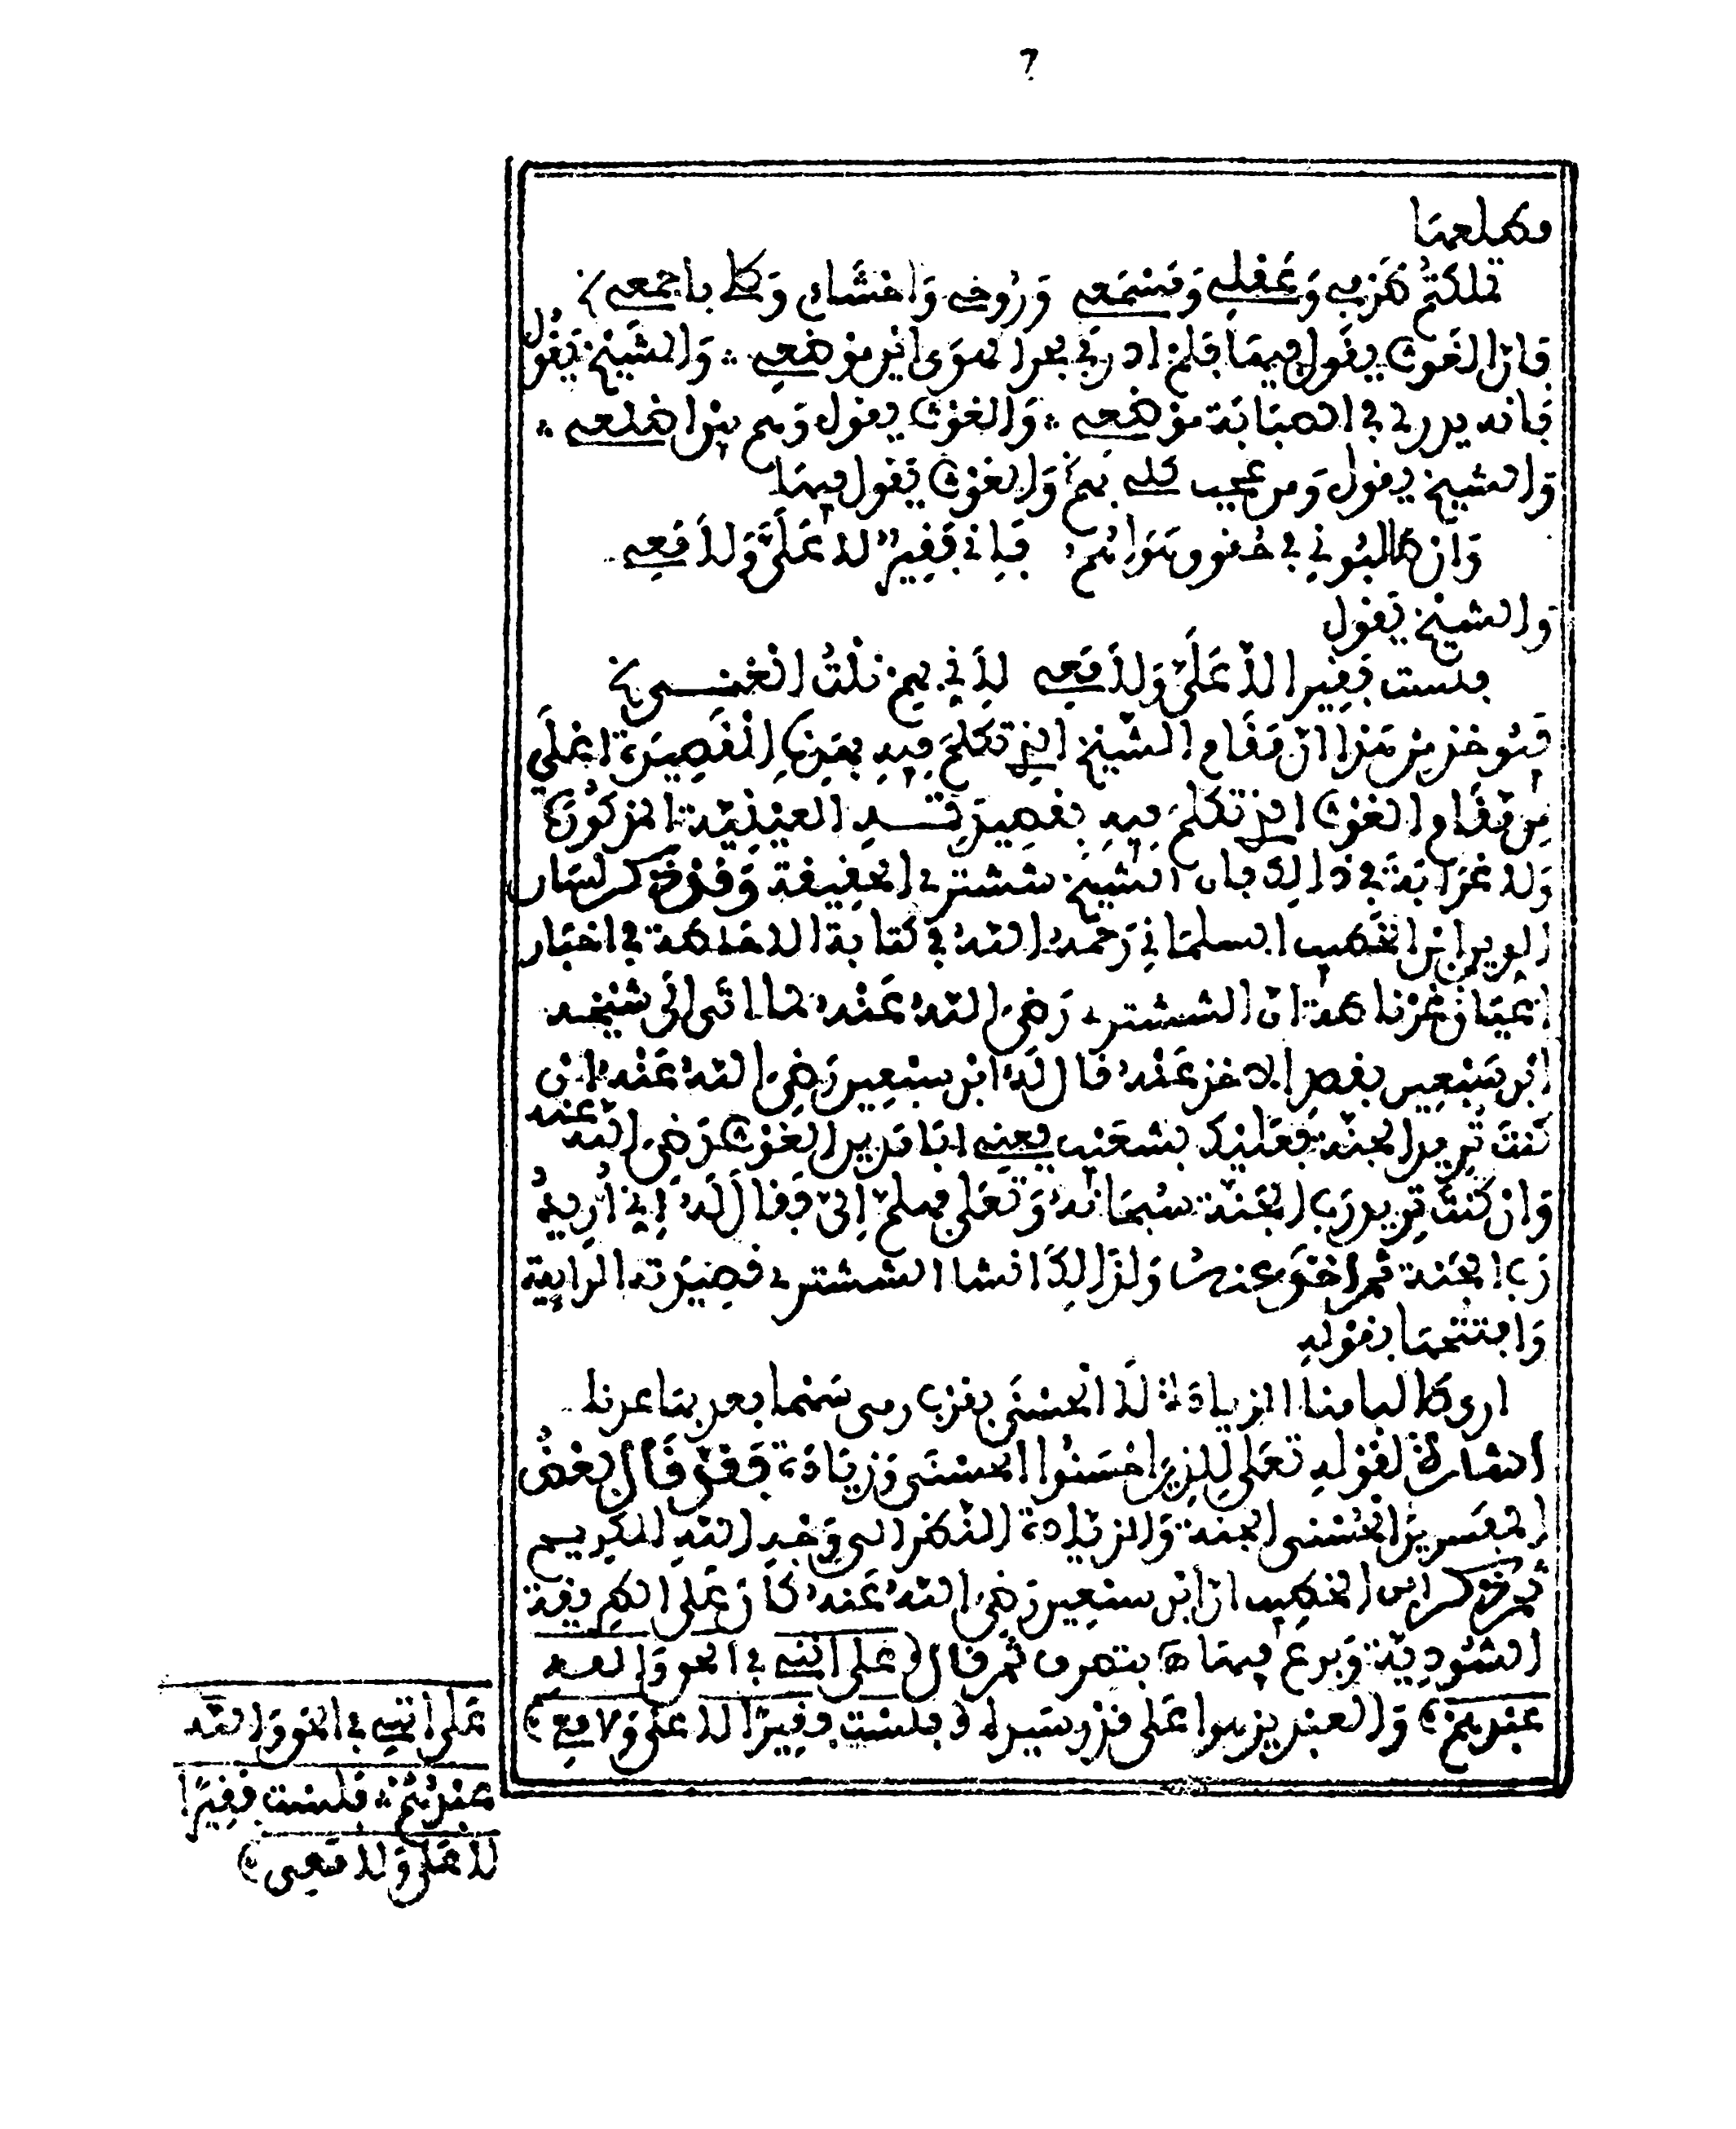 7
ومطلعها
تملكتم طرفي وعقلي ومسمعي وروحي واحشاي وكلي باجمعي
فان الغوث يقول فيها فلم ادر في بحر الهوى اين موضعي والشيخ يقول
فانه يدرى في الصبابة موضعي والغوث يقول وهم بين اضلعي
والشيخ يقول ومن عجب كلي بهم والغوث يقول فيها
وان طالبوني في حقوق هواهم فاني فقير لا علي ولا معي
والشيخ يقول
فلست فقيرا لا علي ولا معي لاني بهم نلت الغنى
فيوخذ من هذا ان مقام الشيخ الذي تكلم فيه بهذه القصيدة اعلى
من مقام الغوث الذي تكلم فيه بقصيدته العينية المذكورة
ولا غرابة في ذالك فان الشيخ ششتري الحقيقة وقد ذكر لسان
الدين ابن الخطيب السلماني رحمه الله في كتابة الاحاطة في اخبار
اعيان غرناطة ان الششتري رضي الله عنه لما اتى الى شيخه
ابن سبعين بقصد الاخذ عنه قال له ابن سبعين رضي الله عنه ان
كنت تريد الجنة فعليك بشعيب يعني ابا مدين الغوث رضي الله عنه
وان كنت تريد رب الجنة سبحانه وتعلى فهلم الي فقال له اني اريد
رب الجنة ثم اخذ عنه ولذالك انشا الششتري قصيدته الرابية
وافتتحها بقوله
ارى طالبا منا الزيادة لا الحسنى بفكر رمى سهما فعدى بنا عدنا
اشارة لقوله تعلى للذين احسنوا الحسنى وزيادة فقد قال بعض
المفسرين الحسنى الجنة والزيادة النظر الى وجه الله الكريم
ثم ذكر ابن الخطيب ان ابن سبعين رضي الله عنه كان على الطريقة
الشودية وبرع فيها بتصرف ثم قال (على انني في المحو والله
عبدهم) والعبد يزهوا على قدر سيده (فلست فقيرا لا علي ولا معي)
على انني في المحو والله
عبدهم فلست فقيرا
لا علي ولا معي